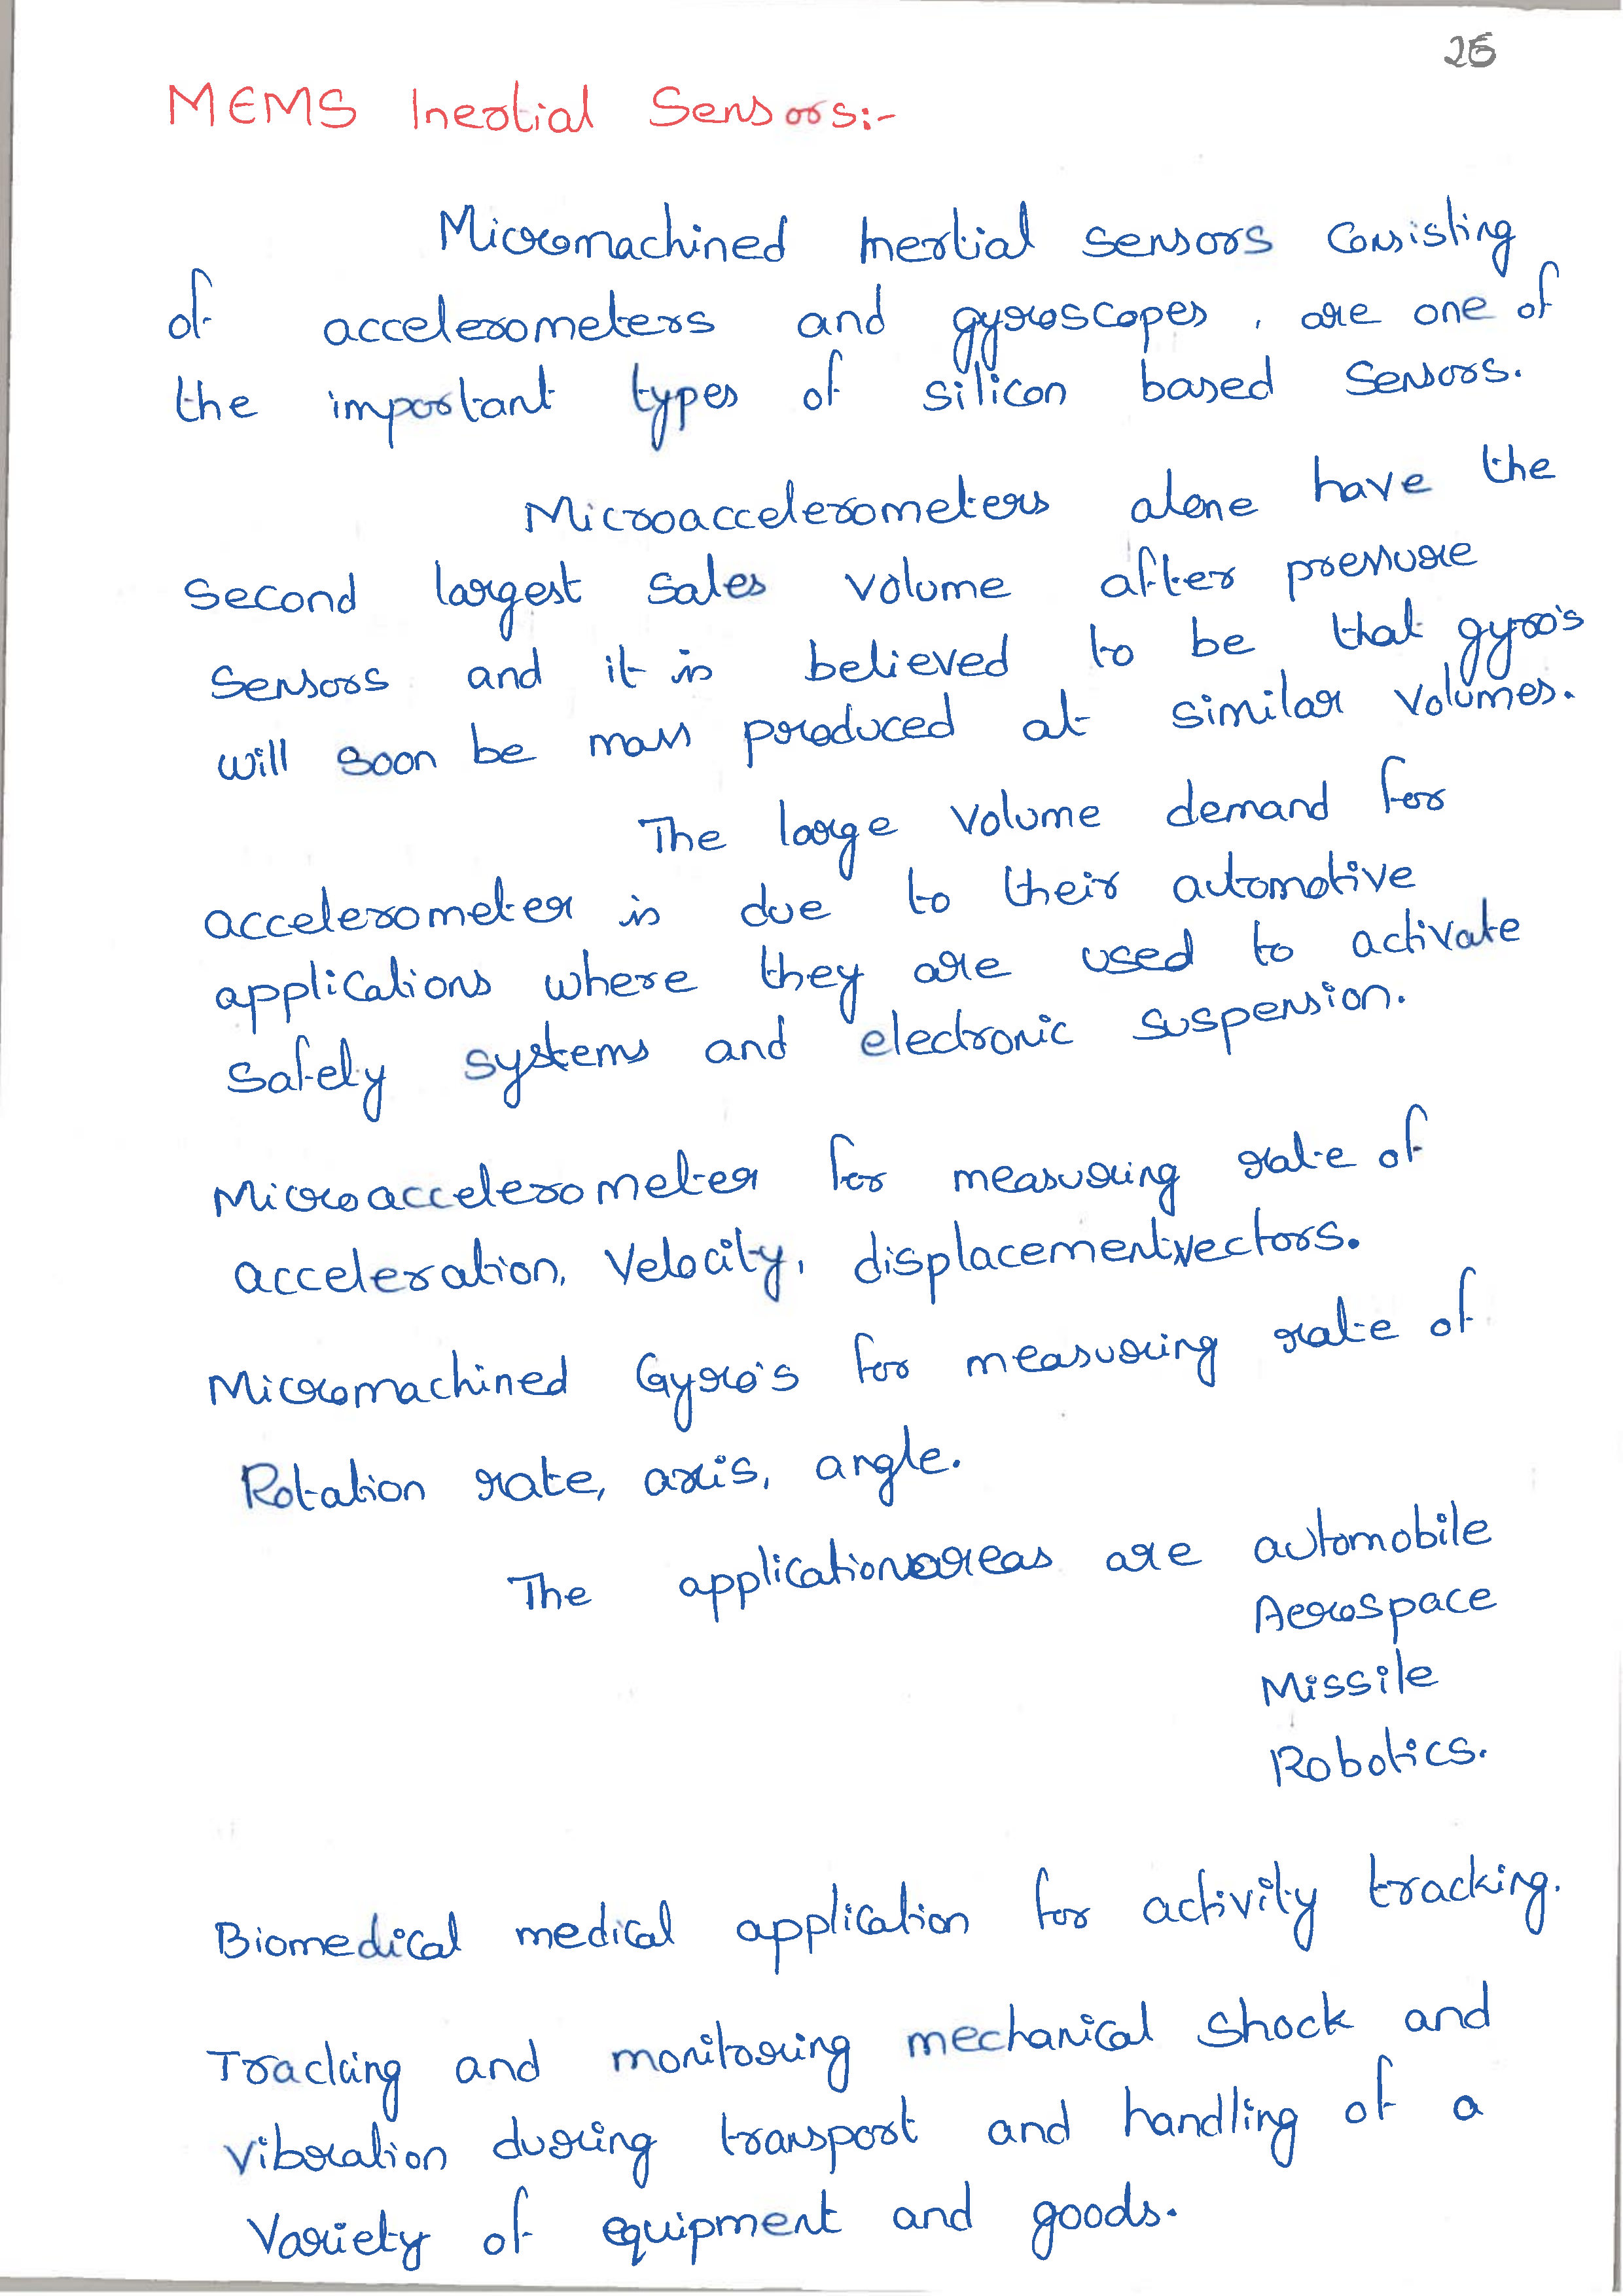 25
MEMS Inertial Sensors:-
Micromachined Inertial sensors consisting
of accelerometers and gyroscopes, are one of
the important types of silicon based sensors.
Microaccelerometers alone have the
second largest sales volume after pressure
sensors and it is believed to be that gyro's
will soon be mass produced at similar volumes.
The large volume demand for
accelerometer is due to their automotive
applications where they are used to activate
safety systems and electronic suspension.
Microaccelerometer for measuring rate of
acceleration, Velocity, displacement vectors.
Micromachined Gyro's for measuring rate of
Rotation rate, axis, angle.
The application areas are automobile
Aerospace
Missile
Robotics.
Biomedical medical application for activity tracking.
Tracking and monitoring mechanical shock and
vibration during transport and handling of a
Variety of equipment and goods.